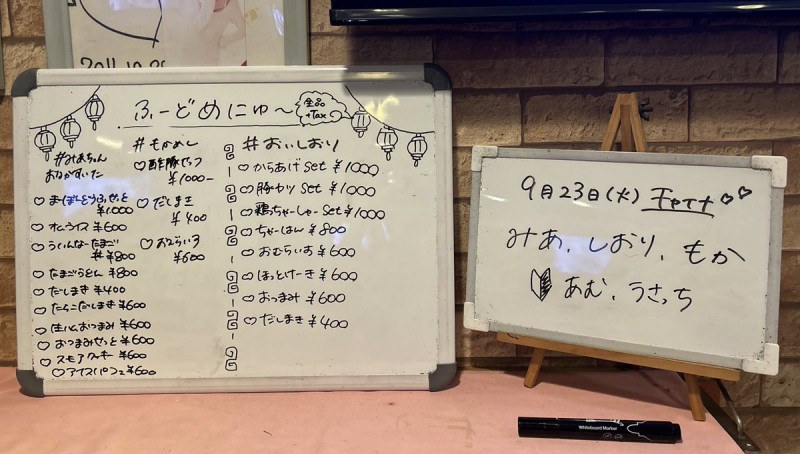 2011.10.29
ふーどめにゅ〜
全品
+Tax
#みあちゃん
おなかすいた
♡まーぼーどうふせっと
¥1000
♡オムライス ¥600
♡ういんなーたまご
¥800
♡たまごうどん ¥800
♡だしまき ¥400
♡たらこだしまき ¥600
♡生ハムおつまみ ¥600
♡おつまみせっと ¥600
♡スモアクッキー ¥600
♡アイスパフェ ¥600
#もかめし
♡酢豚せっつ
¥1000-
♡だしまき
¥400
♡おむらいす
¥600
#おいしおり
♡からあげ Set ¥1000
♡豚カツ Set ¥1000
♡鶏ちゃーしゅー Set ¥1000
♡ちゃーはん ¥800
♡おむらいす ¥600
♡ほっとけーき ¥600
♡おつまみ ¥600
♡だしまき ¥400
9月23日(火) チャイナ♡♡
みあ、しおり、もか
あむ、うさっち
Whiteboard Marker